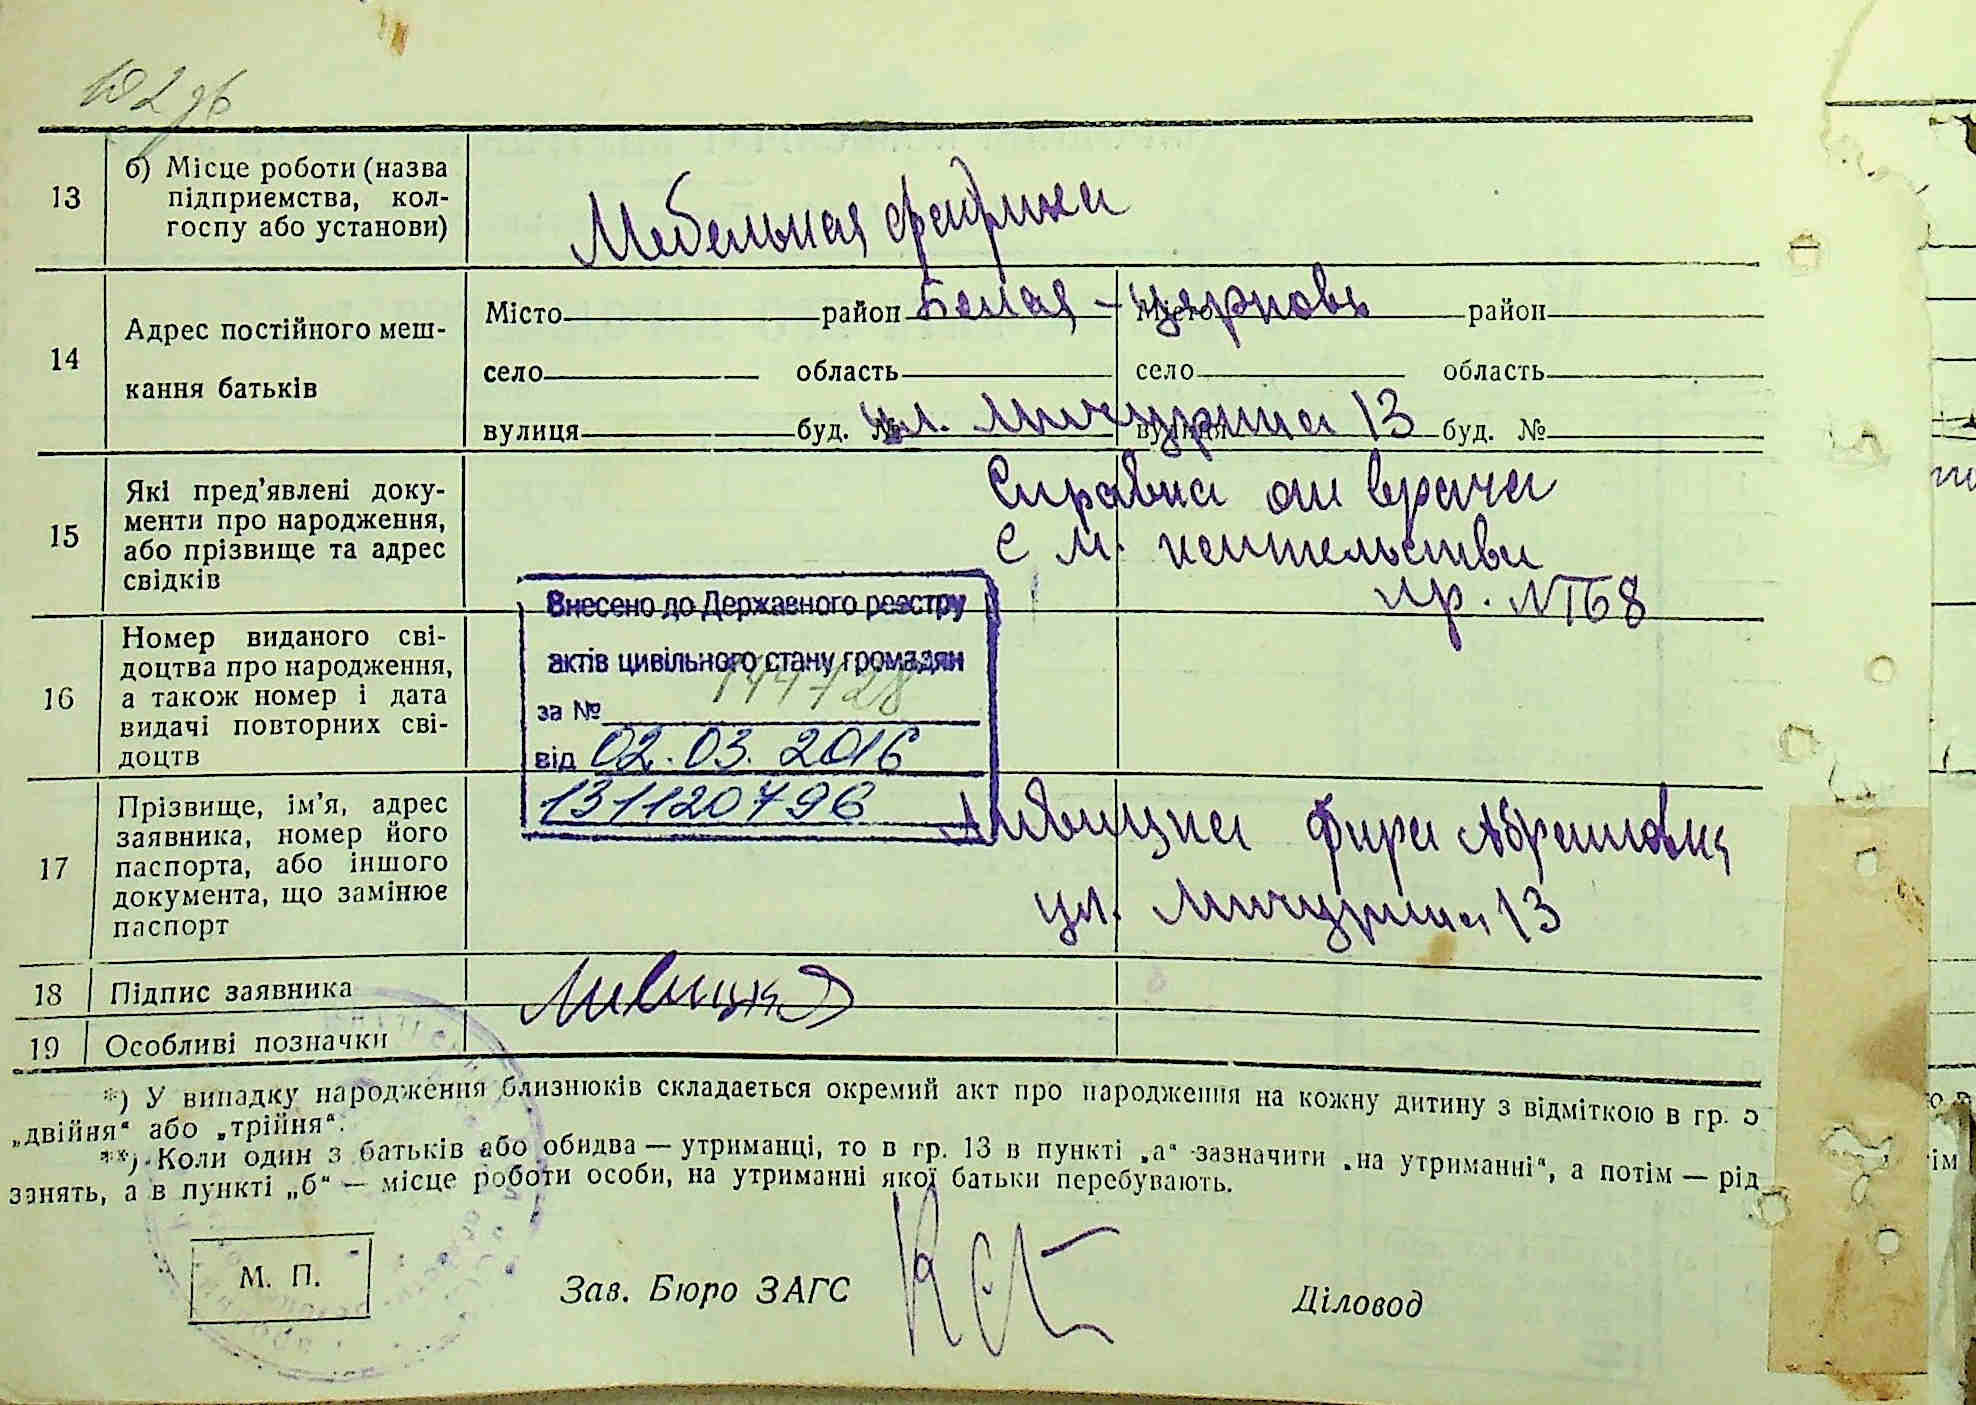 13
б) Місце роботи (назва
підприємства, кол-
госпу або установи)
Мебельная фабрика
14
Адрес постійного меш-
кання батьків
Місто район Белая - церковь Місто район
село область село область
вулиця буд. № ул. Мичурина 13 вулиця буд. №
15
Які пред'явлені доку-
менти про народження,
або прізвище та адрес
свідків
Справка от врача
с м. жительства
пр. №Т68
16
Номер виданого сві-
доцтва про народження,
а також номер і дата
видачі повторних сві-
доцтв
Внесено до Державного реєстру
актів цивільного стану громадян
за №
від 02.03.2016
131120796
17
Прізвище, ім'я, адрес
заявника, номер його
паспорта, або іншого
документа, що замінює
паспорт
Ливицка Фира Абрамовна
ул. Мичурина 13
18 Підпис заявника
19 Особливі позначки
*) У випадку народження близнюків складається окремий акт про народження на кожну дитину з відміткою в гр.
„двійня“ або „трійня“.
**) Коли один з батьків або обидва — утриманці, то в гр. 13 в пункті „а“ зазначити „на утриманні“, а потім — рід
занять, а в пункті „б“ — місце роботи особи, на утриманні якої батьки перебувають.
М. П.
Зав. Бюро ЗАГС
Діловод